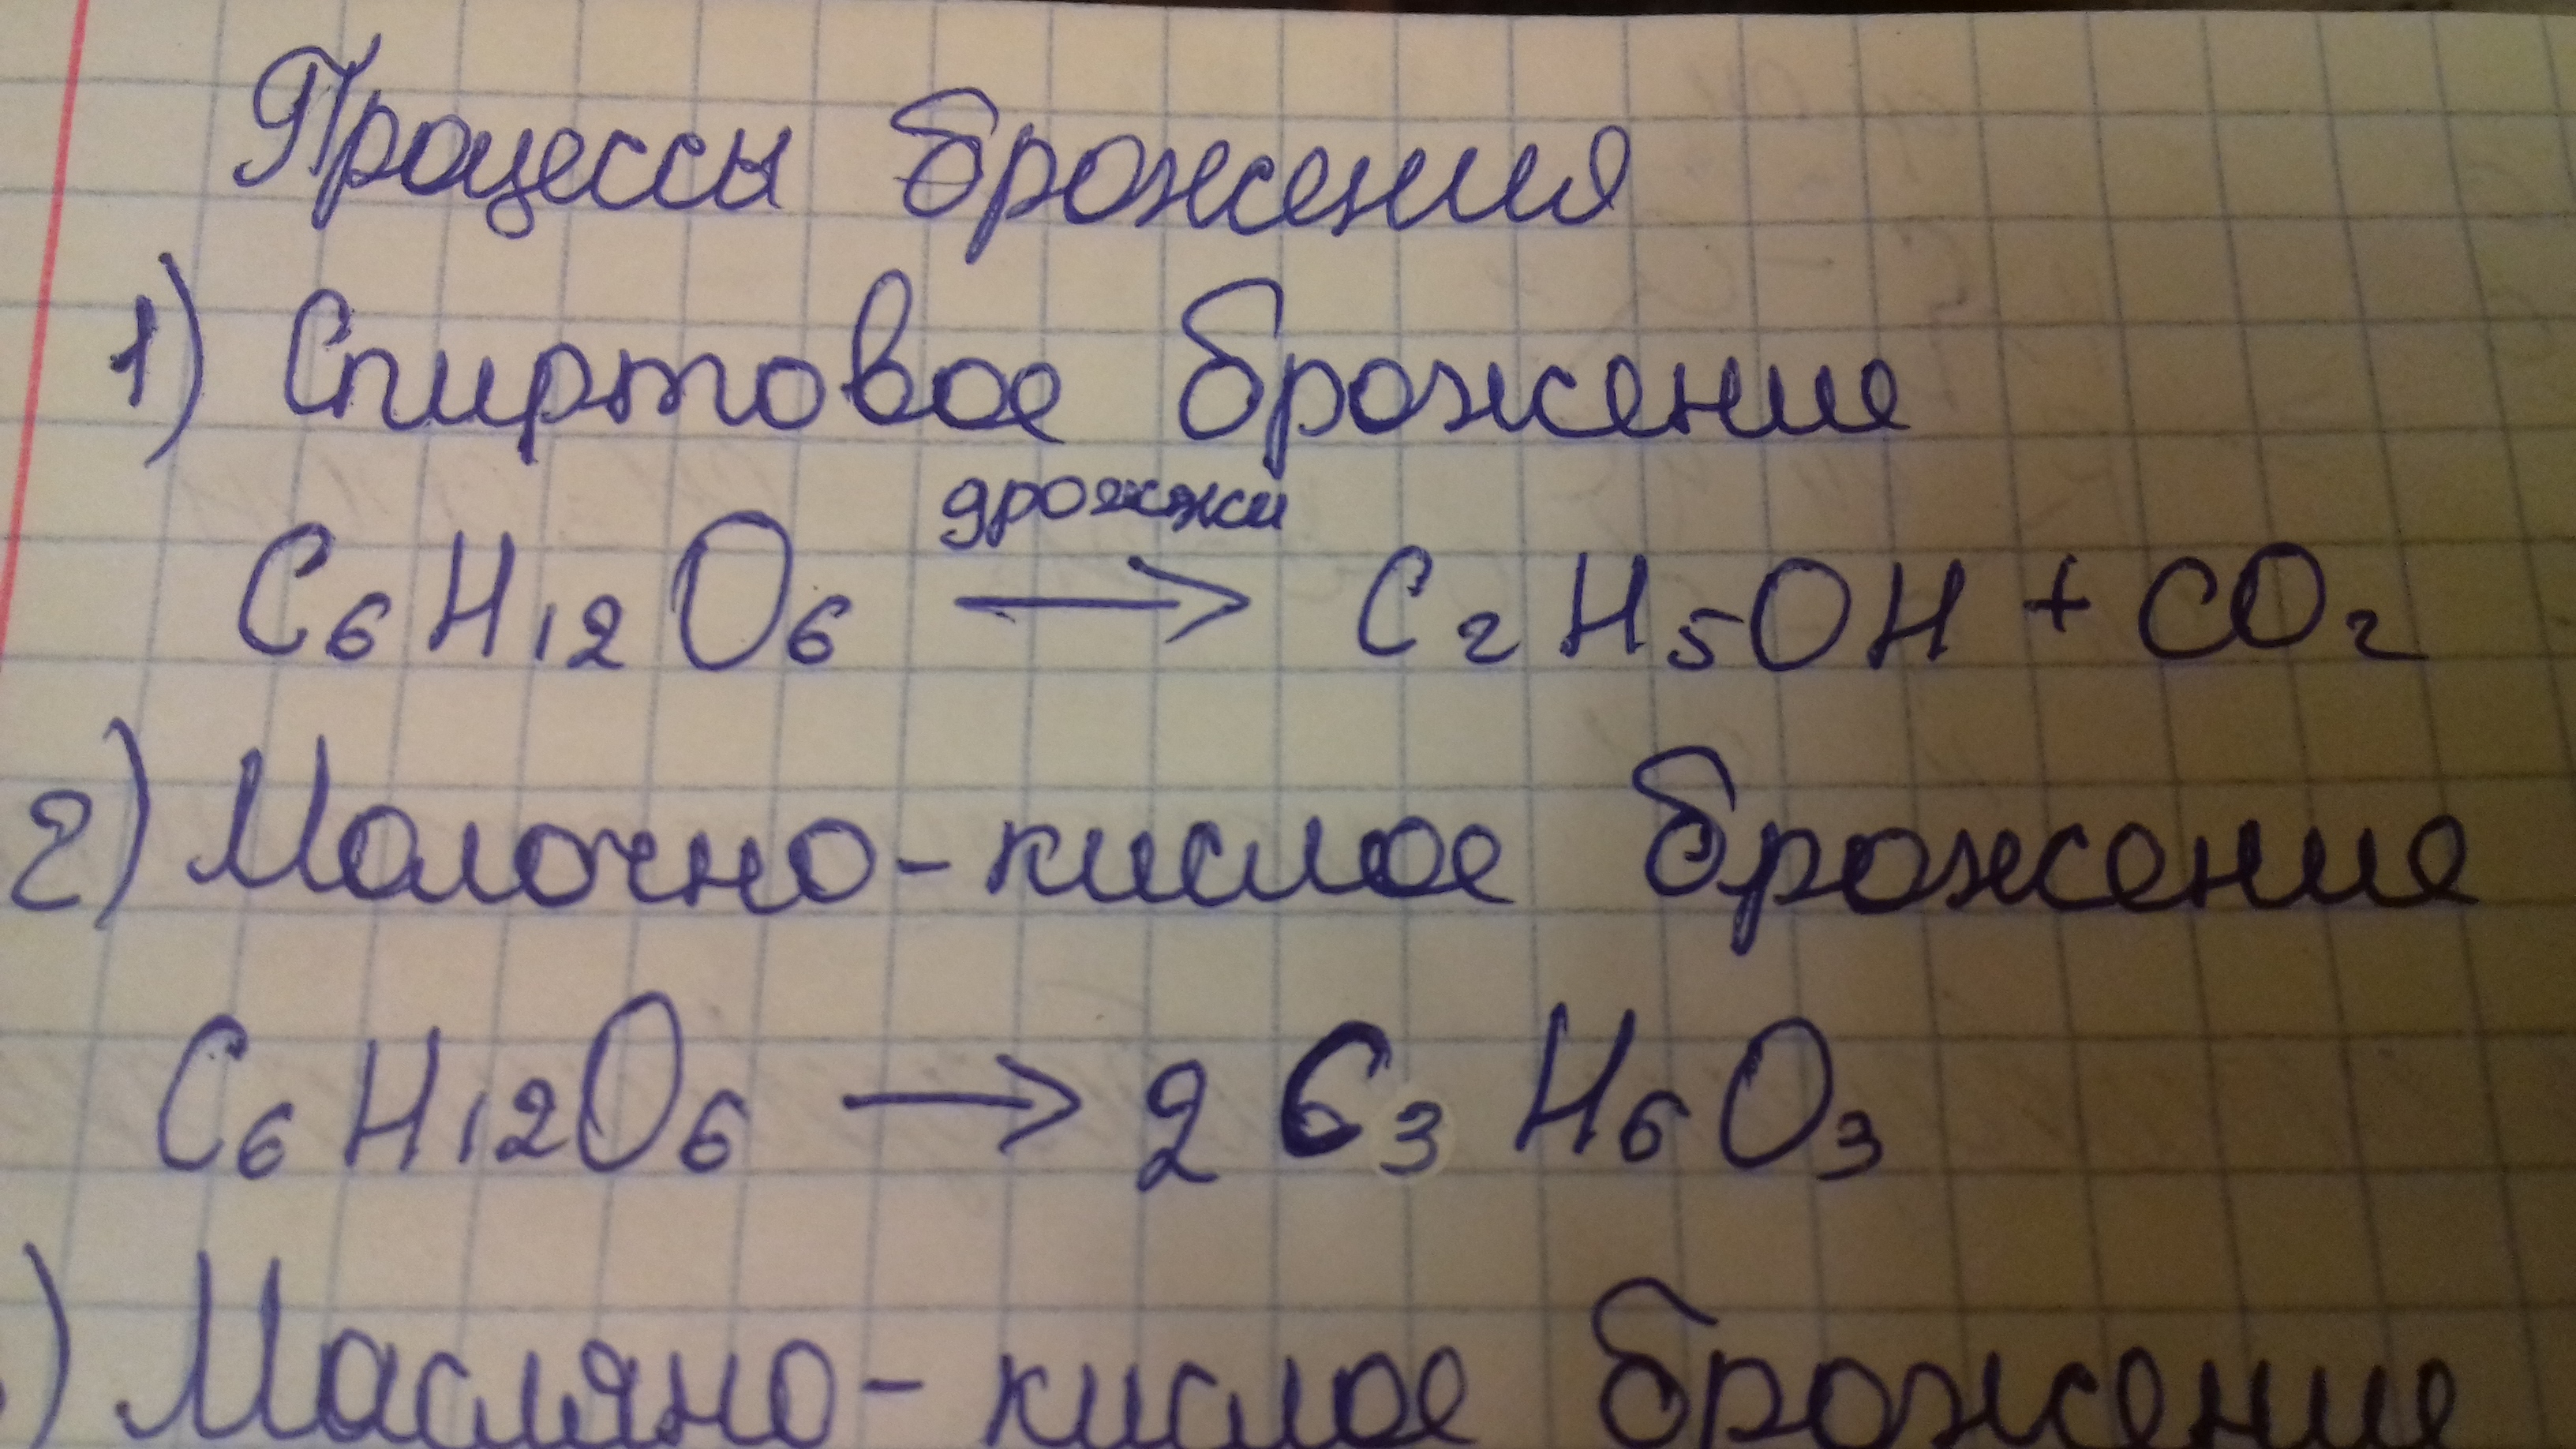 Процессы брожения
1) Спиртовое брожение
дрожжи
C₆H₁₂O₆ → C₂H₅OH + CO₂
2) Молочно-кислое брожение
C₆H₁₂O₆ → 2 C₃H₆O₃
) Масляно-кислое брожение